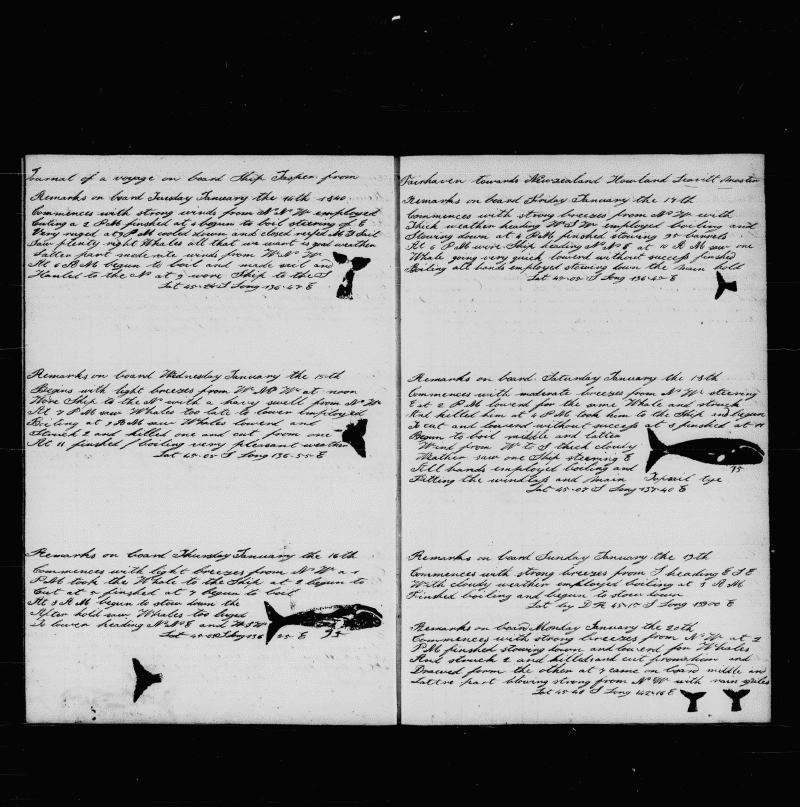 Journal of a voyage on board Ship Jasper from
Remarks on board Tuesday January the 14th 1840
Commences with strong winds from N N W employed
Cuting a 2 PM finished at 5 begun to boil steering of E
Very ruged at 7 PM cooled down and closed reefed M T Sail
Saw plenty right Whales all that we want is good weather
Latter part moderate winds from W N W
At 6 A M begun to boil and made sail and
Hauled to the N at 9 wore Ship to the S
Lat 45-24 S Long 136-47 E
Remarks on board Wednesday January the 15th
Begins with light breezes from W N W at noon
Wore Ship to the N with a havy swell from N W
At 7 PM saw Whales too late to lower employed
Boiling at 3 A M saw Whales lowered and
Struck 2 and killed one and cut from one
At 11 finished boiling very pleasant weather
Lat 45-05 S Long 136-55 E
Remarks on board Thursday January the 16th
Commences with light breezes from N W a 1
PM took the Whale to the Ship at 2 begun to
Cut at finished at 7 begun to boil
At 3 A M begun to stow down the
After hold saw Whales too ruged
To lower heading N N E and W S W
Lat 45-02 S Long 136 22 E
Fairhaven towards Newzealand Howland Leavitt Master
Remarks on board Friday January the 17th
Commences with strong breezes from N W with
Thick weather heading W S W employed boiling and
Stowing down at 5 PM finished stowing barrels
At 6 PM wore Ship heading N N E at 10 A M saw one
Whale going very quick lowered without success finished
Boiling all hands employed stowing down the main hold
Lat 45-02 S Long 136-42 E
Remarks on board Saturday January the 18th
Commences with moderate breezes from N W steering
E at 2 PM lowered for the same Whale and struck
And killed him at 4 PM took him to the Ship and begun
To cut and lowered without success at 8 finished at 11
Begun to boil middle and latter
Wind from W to S thick cloudy
Weather saw one Ship steering E
Till hands employed boiling and
Fitting the windlass and main Topsail tye
75
Lat 45-07 S Long 137-40 E
Remarks on board Sunday January the 19th
Commences with strong breezes from S heading E S E
With cloudy weather employed boiling at 5 A M
Finished boiling and begun to stow down
Lat by D R 45-17 S Long E
Remarks on board Monday January the 20th
Commences with strong breezes from N W at 2
PM finished stowing down and lowered for Whales
And struck 2 and killed and cut from him and
Drawed from the other at 7 came on board middle and
Lattre part blowing strong from N W with rain squales
Lat 45-40 S Long 142-16 E